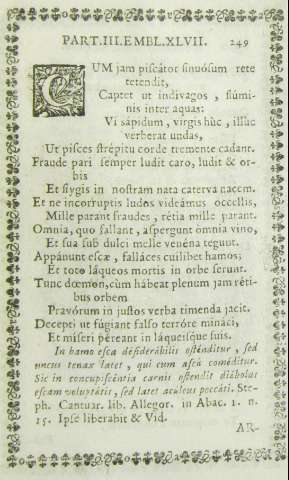 PART. III. EMBL. XLVII. 249
CUM jam piscátor sinuósum rete
tetendit,
Captet ut indivagos, flúmi-
nis inter aquas:
Vi sápidum, virgis hùc, illuc
verberat undas,
Ut pisces strépitu corde tremente cadant.
Fraude pari semper ludit caro, ludit & or-
bis
Et stygis in nostram nata caterva necem.
Et ne incorruptis ludos videámus ocellis,
Mille parant fraudes, rétia mille parant.
Omnia, quo fallant, aspergunt ómnia vino,
Et sua sub dulci melle venéna tegunt.
Appónunt escæ, falláces cuilibet hamos;
Et toto láqueos mortis in orbe serunt.
Tunc dœmon, cùm hábeat plenum jam réti-
bus orbem
Pravórum in justos verba timenda jacit.
Decepti ut fúgiant falso terróre mináci,
Et míseri péreant in láqueísque suis.
In hamo esca desiderábilis osténditur, sed
uncus tenax latet, qui cum ascâ coméditur.
Sic in concupiscéntia carnis ostendit diábolus
escam voluptátis, sed latet aculeus peccáti. Ste-
ph. Cantuar. lib. Allegor. in Abac. 1. n.
15. Ipse liberabit & Vid.
AR-